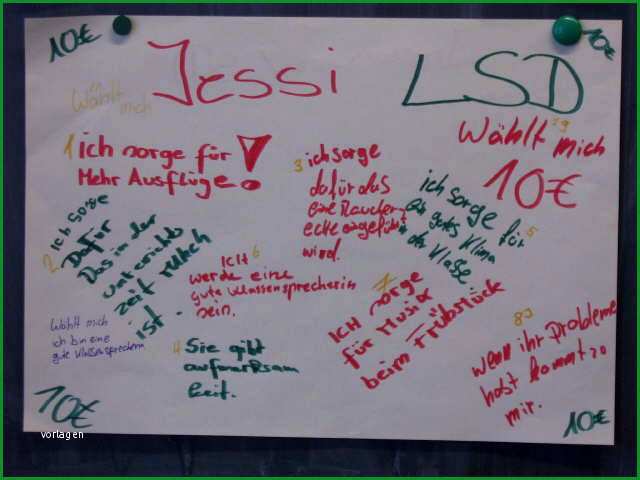 10€
10€
Jessi LSD
Wählt
mich
Wählt mich
10€
1 ich sorge für
Mehr Ausflüge!
2 Ich sorge
Dafür
Das in der
unterichts
zeit
ist.
3 ich sorge
dafür das
eine Raucher
ecke eigeführt
wird.
ich sorge für 5
ein gutes Klima
in der Klasse
Ich 6
werde eine
gute Klassensprecherin
sein.
7
ICH sorge
für Musik
beim Frübstück
Wählt mich
ich bin eine
gute Klassensprecherin
4 Sie gibt
aufmerksam
keit.
8
wenn ihr Probleme
habt kommt zu
mir.
10€
10€
vorlagen